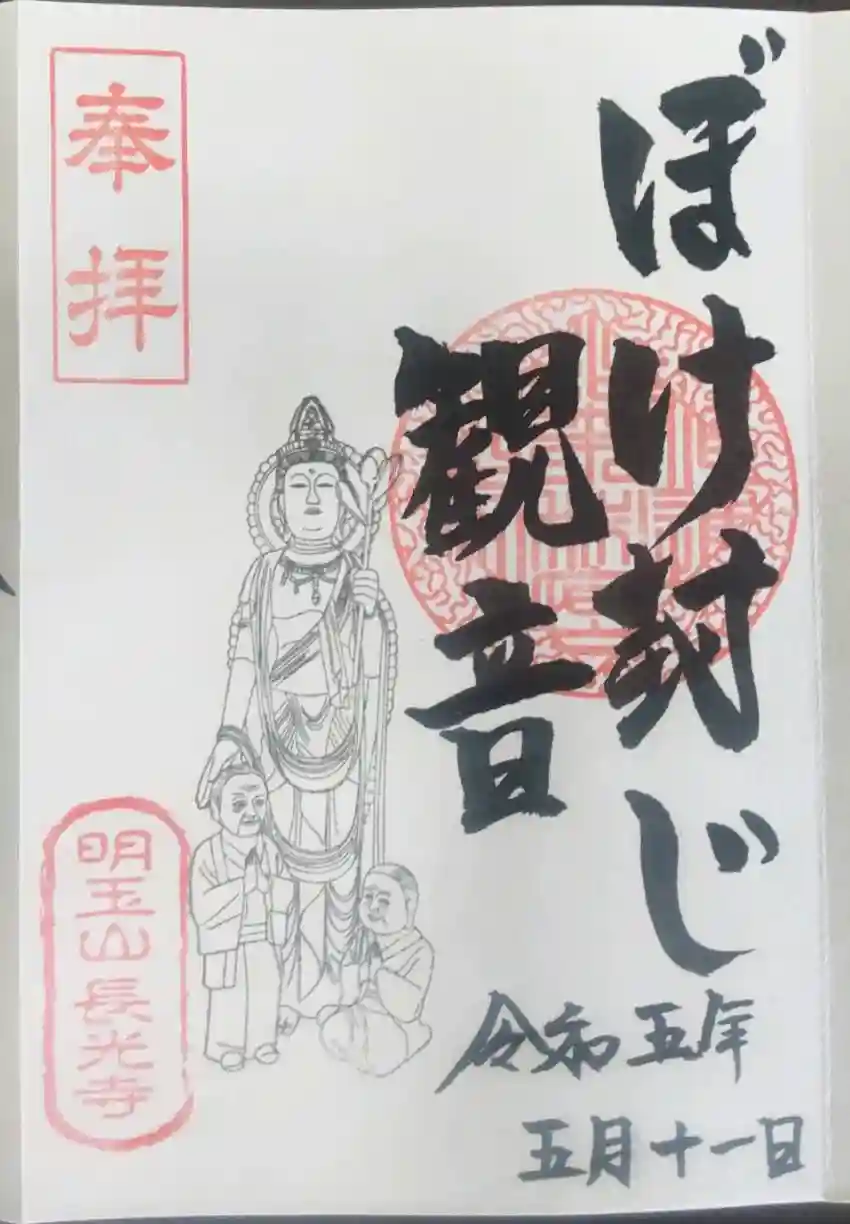 ぼけ封じ
観音
令和五年
五月十一日
奉拝
明玉山長光寺